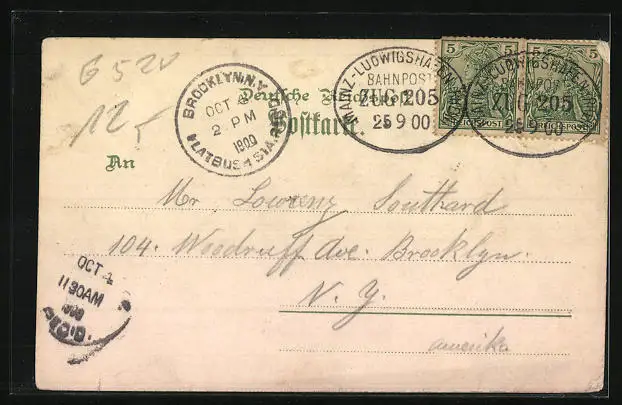 G 520
12,-
BROOKLYN, N.Y.
OCT 4
2 PM
1900
FLATBUSH STA.
MAINZ-LUDWIGSHAFEN
BAHNPOST
ZUG 205
25 9 00
5 5
REICHSPOST REICHSPOST
MAINZ-LUDWIGSHAFEN
BAHNPOST
ZUG 205
25 9 00
Deutsche Reichspost
Postkarte
An
Mr Lowrenz Southard
104. Woodruff Ave. Brooklyn.
N. Y.
amerika
OCT 4
11 30 AM
1900
REC'D.